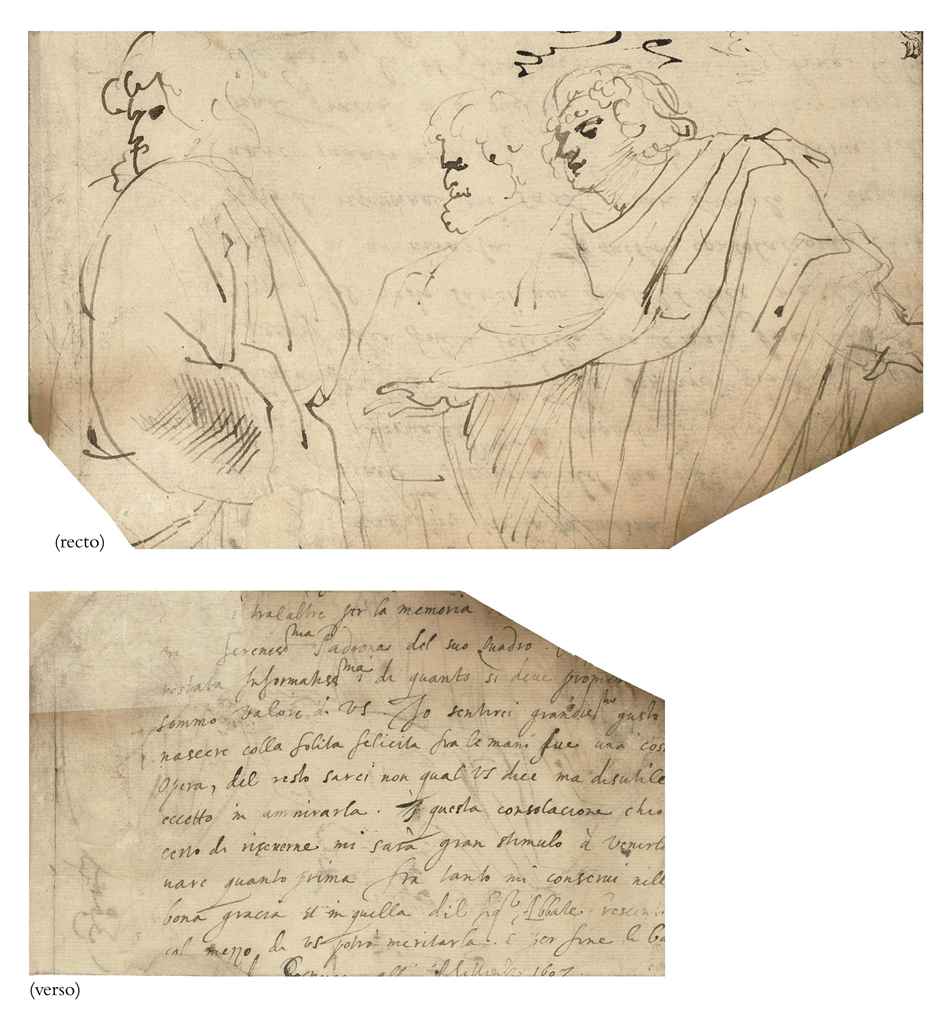 (recto)
per la memoria
Sereniss.ma Padrona del suo Quadro.
Informatiss.ma di quanto si deve
sommo valore di VS Io sentirei grandiss.mo gusto
nascere colla solita felicita fra le mani sue una cos
Opera, del resto sarei non qual VS dice ma disutile
eccetto in ammirarla. questa consolacione chio
certo di riceverne mi sarà gran stimulo à venirl
nare quanto prima fra tanto mi conservi nell
bona gracia et in quella dil Sig.r Abbate
col mezzo di VS potrò meritarla. E per fine le ba
1607
(verso)